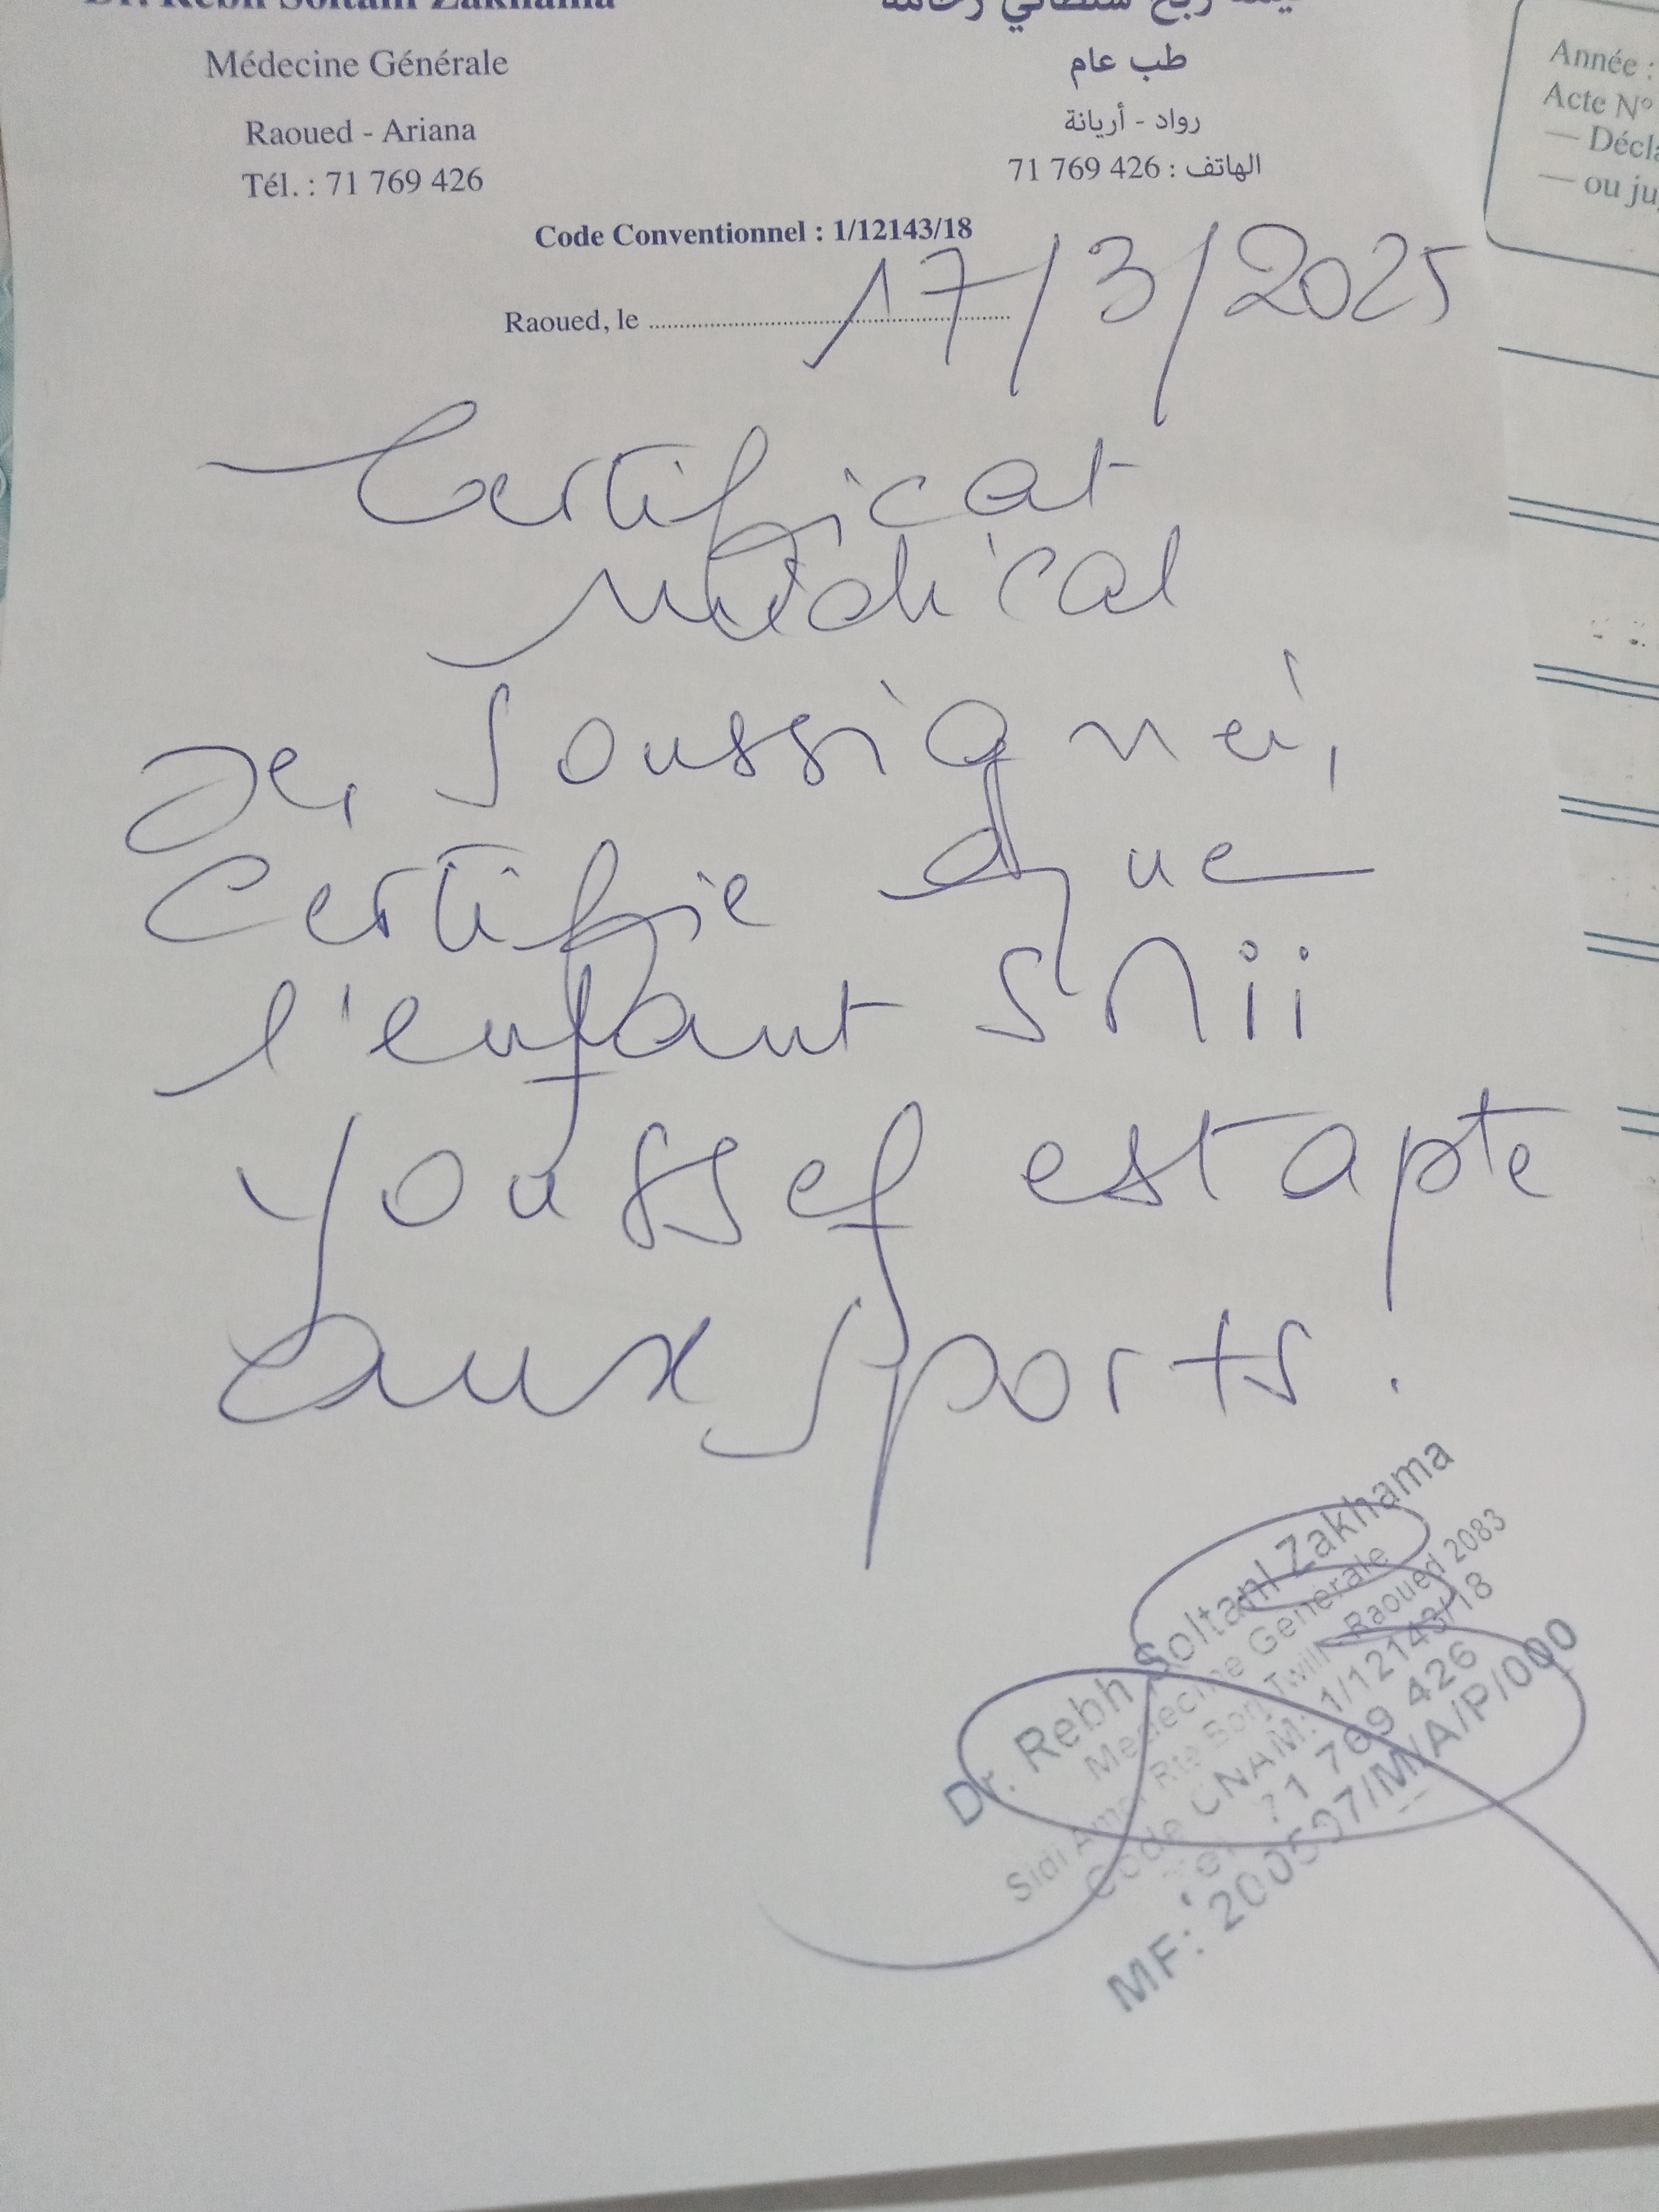 Dr. Rebh Soltani Zakhama
Médecine Générale
Raoued - Ariana
Tél. : 71 769 426
طب عام
رواد - أريانة
الهاتف : 426 769 71
Code Conventionnel : 1/12143/18
Raoued, le 17/3/2025
Certificat
Médical
Je, soussigné,
certifie que
l'enfant Snii
Youssef est apte
aux sports.
Dr. Rebh Soltani Zakhama
Médecine Générale
Raoued 2083
Code CNAM: 1/12143/18
Tel 71 769 426
Année :
Acte N°